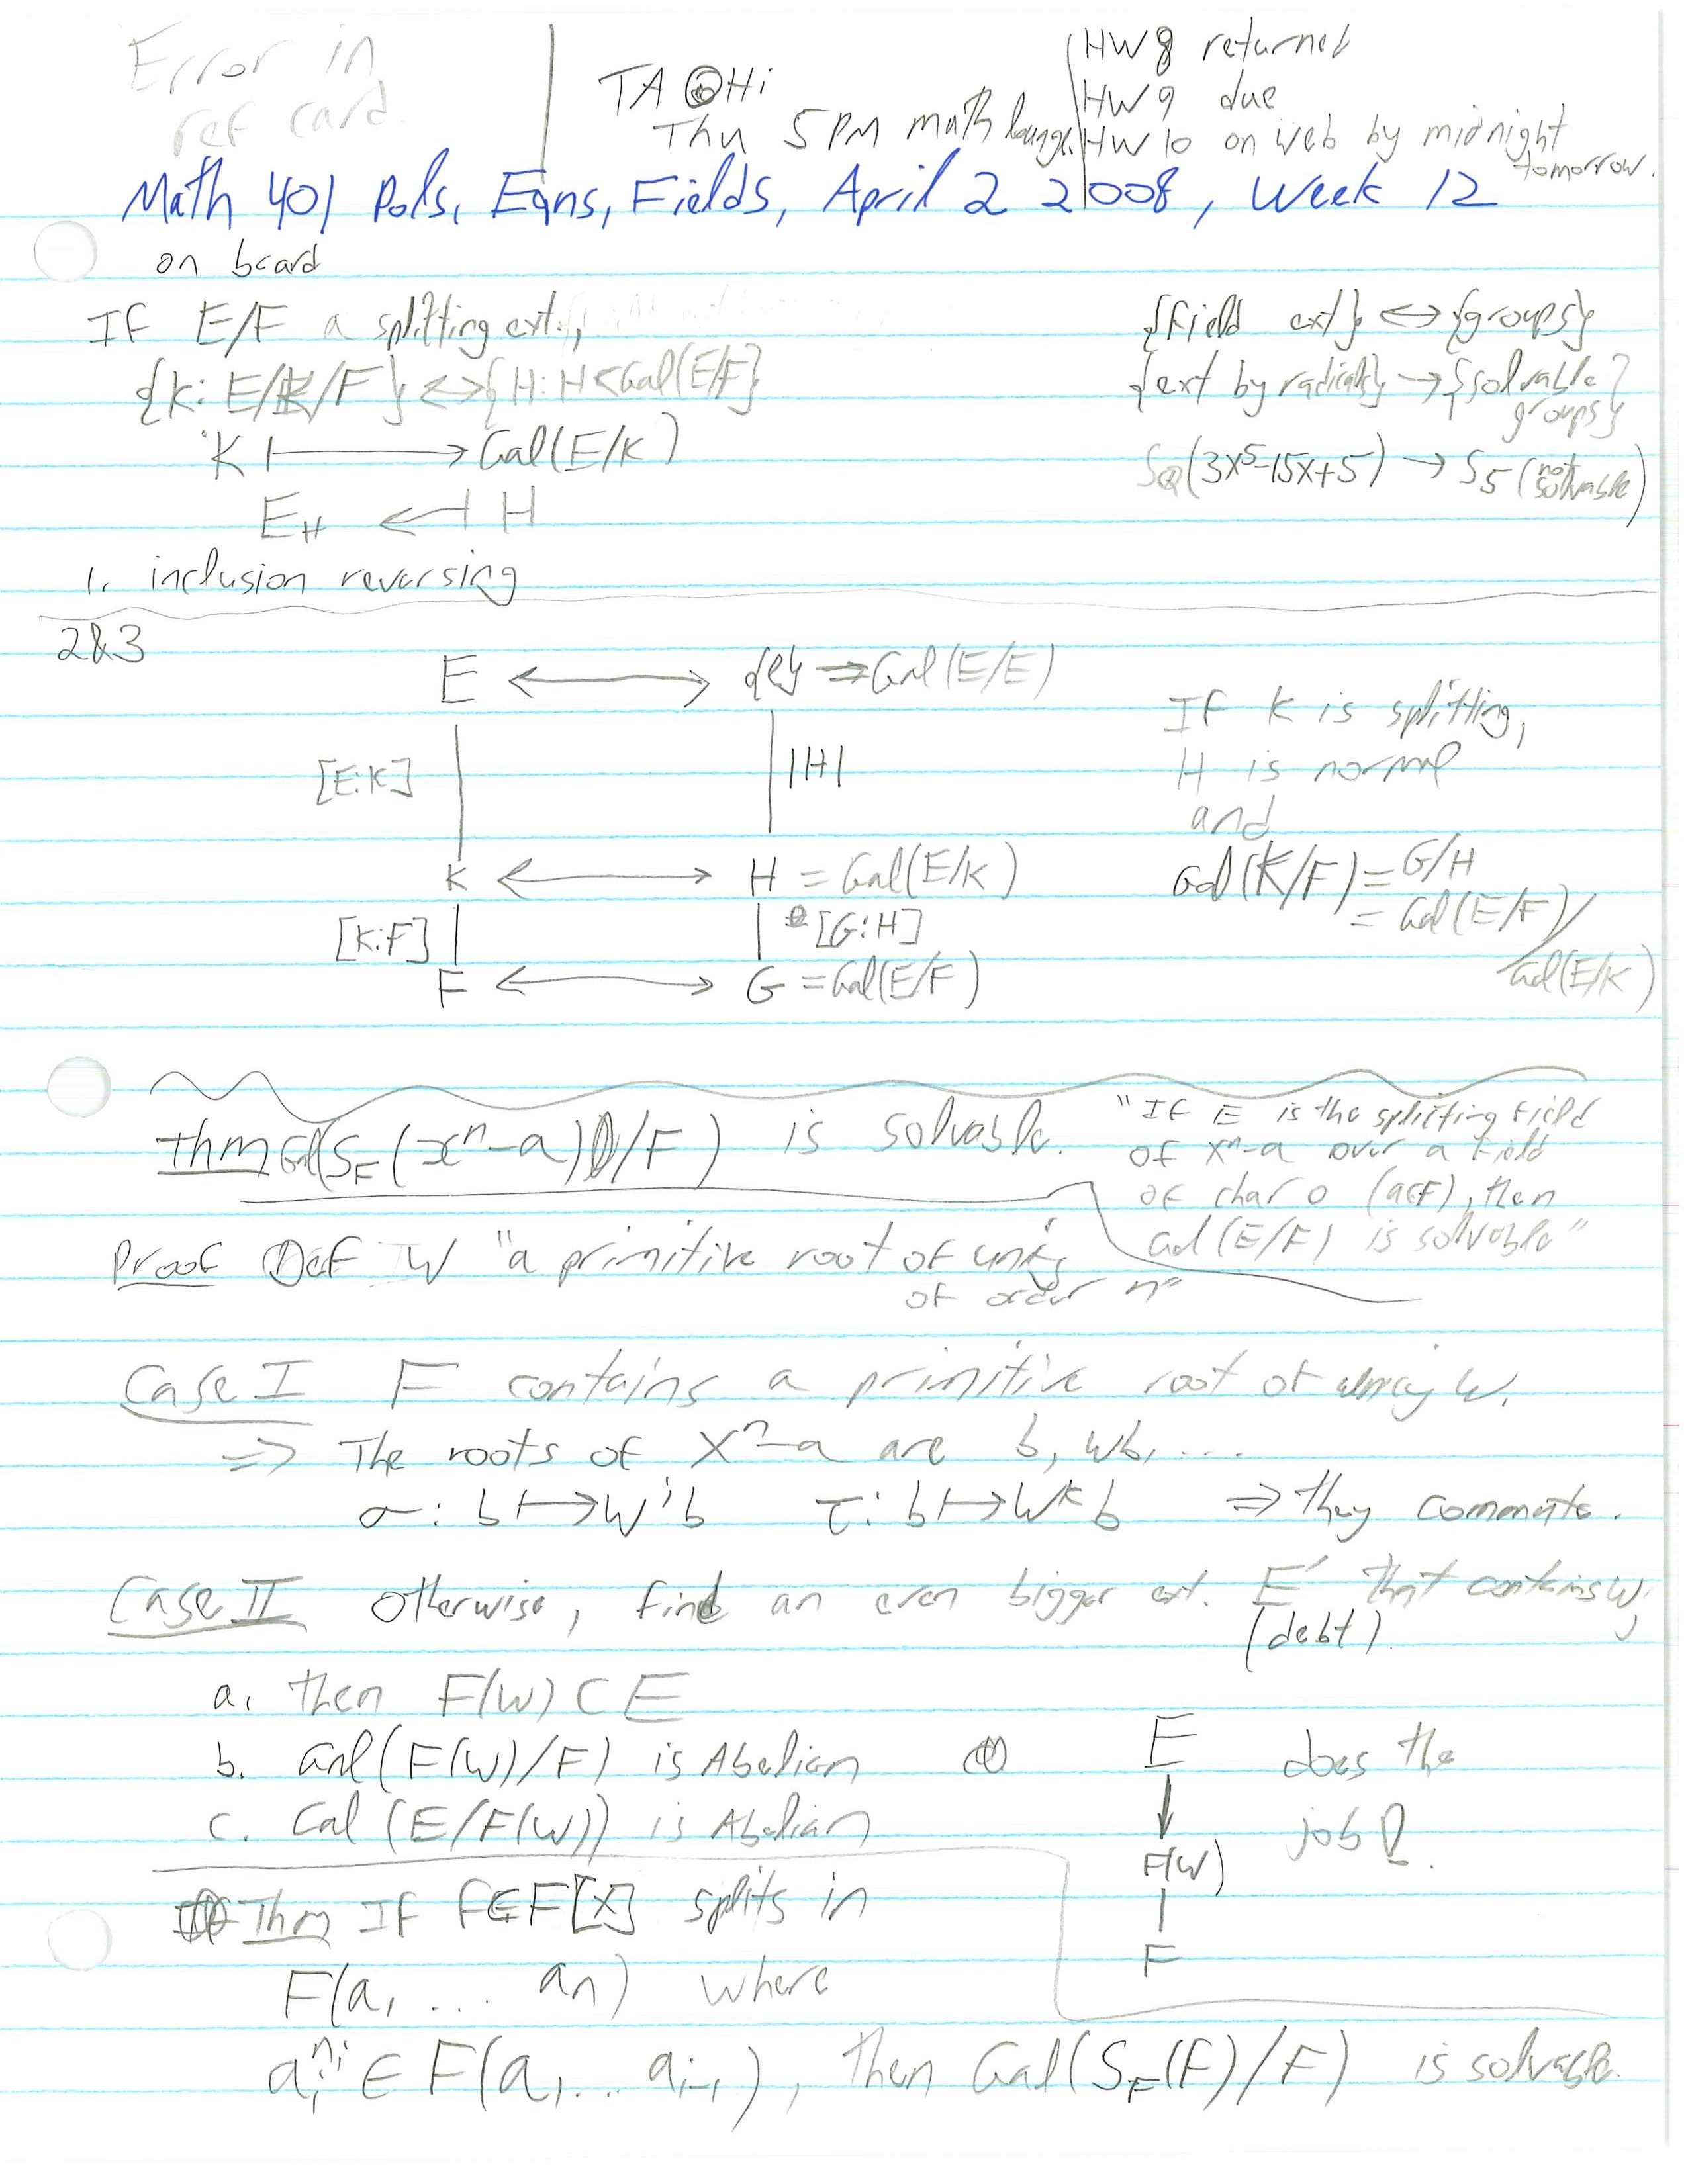 Error in
ref card.
TA OHi
Thu 5 PM math lounge
HW 8 returned
HW 9 due
HW 10 on web by midnight
tomorrow.
Math 401 Pols, Eqns, Fields, April 2 2008, Week 12
on board
If E/F a splitting ext.,
{K: E/K/F} ↔ {H: H<Gal(E/F}
K ↦ Gal(E/K)
E_H ↤ H
1. inclusion reversing
{field ext} ↔ {groups}
{ext by radicals} → {solvable
groups}
S_Q(3x⁵-15x+5) → S₅ (not
solvable)
2&3
E ↔ {e} = Gal(E/E)
[E:K] |H|
K ↔ H = Gal(E/K)
[K:F] [G:H]
F ↔ G = Gal(E/F)
If K is splitting,
H is normal
and
Gal(K/F) = G/H
= Gal(E/F)/
Gal(E/K)
Thm Gal(S_F(xⁿ-a)/F) is solvable.
"If E is the splitting field
of xⁿ-a over a field
of char 0 (a∈F), then
Gal(E/F) is solvable"
Proof Def W "a primitive root of unity
of order n"
Case I F contains a primitive root of unity W.
⇒ The roots of xⁿ-a are b, Wb, ...
σ: b ↦ Wʲb τ: b ↦ Wᵏb ⇒ they commute.
Case II otherwise, find an even bigger ext. E' that contains W,
(debt).
a. then F(W) ⊂ E
b. Gal(F(W)/F) is Abelian
c. Gal(E/F(W)) is Abelian
E does the
job!
F(W)
F
Thm If f∈F[x] splits in
F(a₁ .... aₙ) where
aᵢ^nᵢ ∈ F(a₁ ... aᵢ₋₁), then Gal(S_F(f)/F) is solvable.